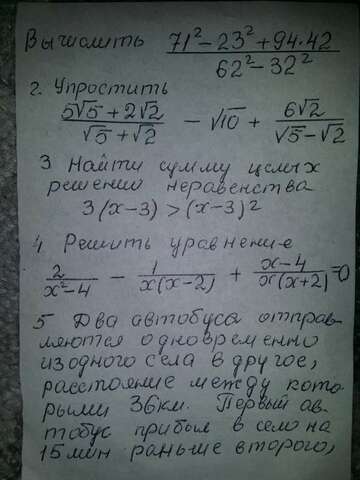 Вычислить (71² − 23² + 94·42)/(62² − 32²)
2. Упростить
(5√5 + 2√2)/(√5 + √2) − √10 + 6√2/(√5 − √2)
3 Найти сумму целых
решений неравенства
3(x−3) > (x−3)²
4 Решить уравнение
2/(x²−4) − 1/(x(x−2)) + (x−4)/(x(x+2)) = 0
5 Два автобуса отправ-
ляются одновременно
из одного села в другое,
расстояние между кото-
рыми 36км. Первый ав-
тобус прибыл в село на
15мин раньше второго,